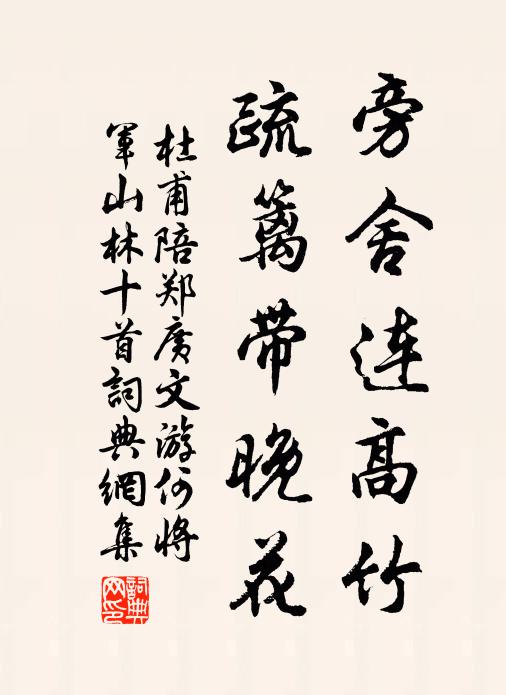 旁舍连高竹
疏篱带晚花
杜甫陪郑广文游何将
军山林十首詞典網集